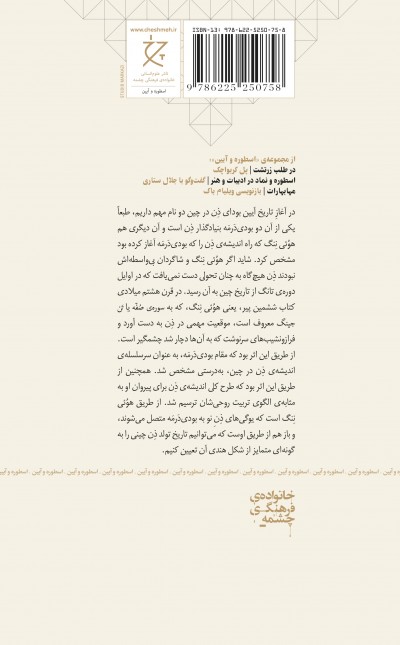 ISBN-13: 978-622-5250-75-8
9 786225 250758
www.cheshmeh.ir
خانواده‌ی فرهنگی چشمه
اسطوره و آیین
از مجموعه‌ی «اسطوره و آیین»:
در طلب زرتشت | پل کریواچک
اسطوره و نماد در ادبیات و هنر | گفت‌وگو با جلال ستاری
مهابهارات | بازنویسی ویلیام باک
در آغاز تاریخ آیین بودای ذِن در چین دو نام مهم داریم، طبعاً
یکی از آن دو بودی‌دَرمَه بنیادگذار ذِن است و آن دیگری هم
هوُئی نِنگ که راه اندیشه‌ی ذِن را که بودی‌دَرمَه آغاز کرده بود
مشخص کرد. شاید اگر هوُئی نِنگ و شاگردان بی‌واسطه‌اش
نبودند ذِن هیچ‌گاه به چنان تحولی دست نمی‌یافت که در اوایل
دوره‌ی تانگ از تاریخ چین به آن رسید. در قرن هشتم میلادی
کتاب ششمین پیر، یعنی هوُئی نِنگ، که به سوره‌ی صُفّه یا تَن
جینگ معروف است، موقعیت مهمی در ذِن به دست آورد و
فرازونشیب‌های سرنوشت که به آن‌ها دچار شد چشمگیر است.
از طریق این اثر بود که مقام بودی‌دَرمَه، به عنوان سرسلسله‌ی
اندیشه‌ی ذِن در چین، به‌درستی مشخص شد. همچنین از
طریق این اثر بود که طرح کلی اندیشه‌ی ذِن برای پیروان او به
مثابه‌ی الگوی تربیت روحی‌شان ترسیم شد. از طریق هوُئی
نِنگ است که یوگی‌های ذِنِ نو به بودی‌دَرمَه متصل می‌شوند،
و باز هم از طریق اوست که می‌توانیم تاریخ تولد ذِن چینی را به
گونه‌ای متمایز از شکل هندی آن تعیین کنیم.
اسطوره و آیین . اسطوره و آیین . اسطوره و آیین . اسطوره و آیین . اسطوره و آیین . اسطوره و آیین . اسطوره و آیین . اسطوره و آیین . اسطوره و آیین
خانواده‌ی
فرهنگی
چشمه